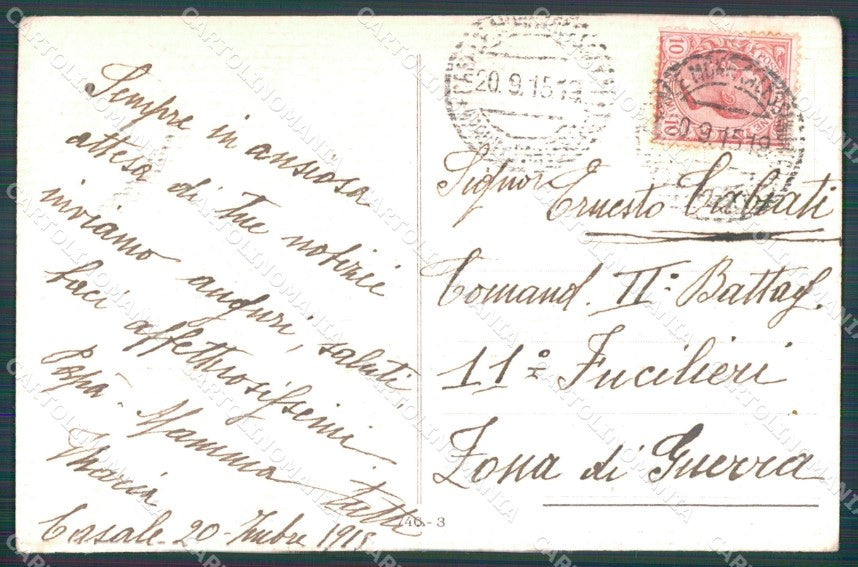 Sempre in ansiosa
attesa di tue notizie
inviamo auguri, saluti,
baci affettuosissimi
Papà - Mamma
Maria tutti
Casale 20 - 7mbre 1915
20.9.15 19
10
10
0.9.15 19
Signor Ernesto Cabiati
Comand. II° Battagl.
11° Fucilieri
Zona di Guerra
46 - 3
CARTOLINOMANIA